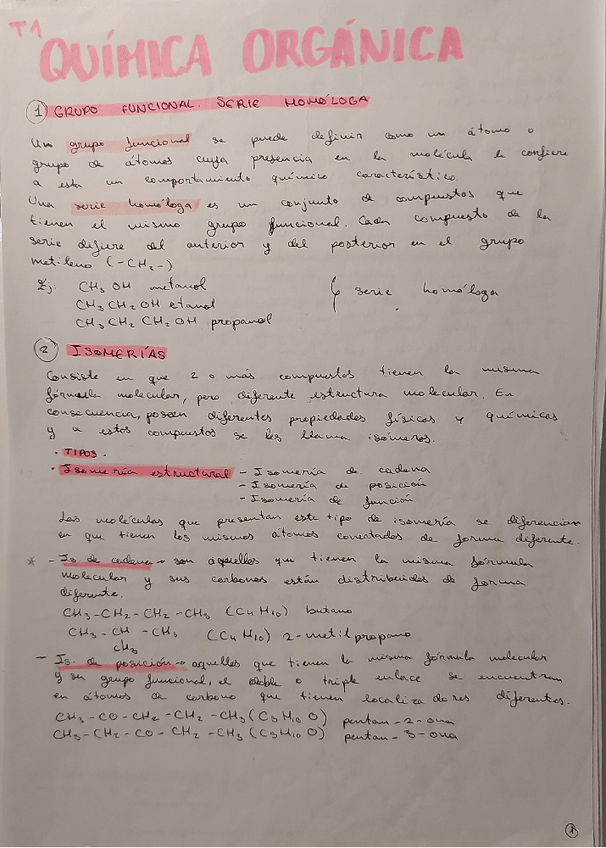 T1
QUÍMICA ORGÁNICA
① GRUPO FUNCIONAL. SERIE HOMÓLOGA
Un grupo funcional se puede definir como un átomo o
grupo de átomos cuya presencia en la molécula le confiere
a esta un comportamiento químico característico.
Una serie homóloga es un conjunto de compuestos que
tienen el mismo grupo funcional. Cada compuesto de la
serie difiere del anterior y del posterior en el grupo
metileno (-CH₂-)
Ej: CH₃ OH metanol
CH₃ CH₂ OH etanol
CH₃ CH₂ CH₂ OH propanol
serie homóloga
② ISOMERÍAS
Consiste en que 2 o más compuestos tienen la misma
fórmula molecular, pero diferente estructura molecular. En
consecuencia, poseen diferentes propiedades físicas y químicas
y a estos compuestos se les llama isómeros.
· TIPOS ·
· Isomería estructural - Isomería de cadena
- Isomería de posición
- Isomería de función
Las moléculas que presentan este tipo de isomería se diferencian
en que tienen los mismos átomos conectados de forma diferente.
* - Is. de cadena → son aquellos que tienen la misma fórmula
molecular y sus carbonos están distribuidos de forma
diferente.
CH₃-CH₂-CH₂-CH₃ (C₄H₁₀) butano
CH₃-CH-CH₃ (C₄H₁₀) 2-metilpropano
CH₃
- Is. de posición → aquellos que tienen la misma fórmula molecular
y su grupo funcional, el doble o triple enlace se encuentran
en átomos de carbono que tienen localizadores diferentes.
CH₃-CO-CH₂-CH₂-CH₃ (C₅H₁₀O) pentan-2-ona
CH₃-CH₂-CO-CH₂-CH₃ (C₅H₁₀O) pentan-3-ona
①